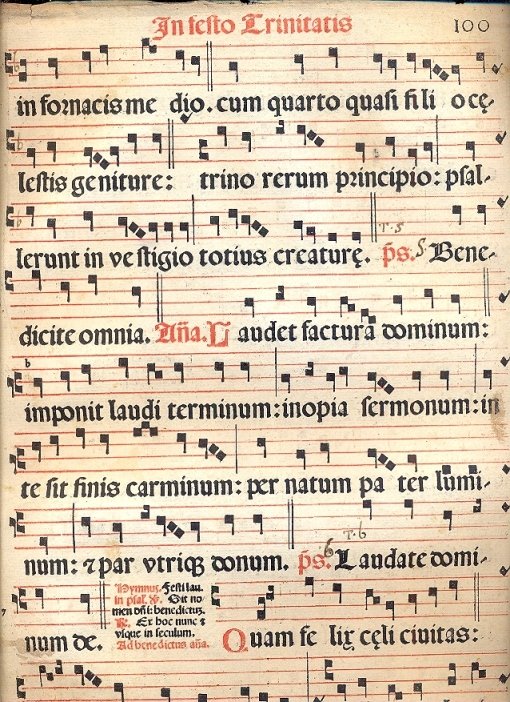 In festo Trinitatis 100
in fornacis me dio. cum quarto quasi fi li o cę-
lestis ge niture: trino rerum principio: psal-
lerunt in ve stigio totius creaturę. p̄s. 5 Bene-
T. 5
dicite omnia. Añа. Laudet factura dominum:
imponit laudi terminum: inopia sermonum: in
te sit finis carminum: per natum pa ter lumi-
num: ⁊ par vtriqȝ donum. p̄s. 6 Laudate domi-
T. 6
num de.
Hymnus. Festi lau.
in psal. ℣. Sit no
men dñi: benedictuȝ.
℟. Ex hoc nunc ⁊
vsque in seculum.
Ad benedictus aña.
Quam fe lix cęli ciuitas: